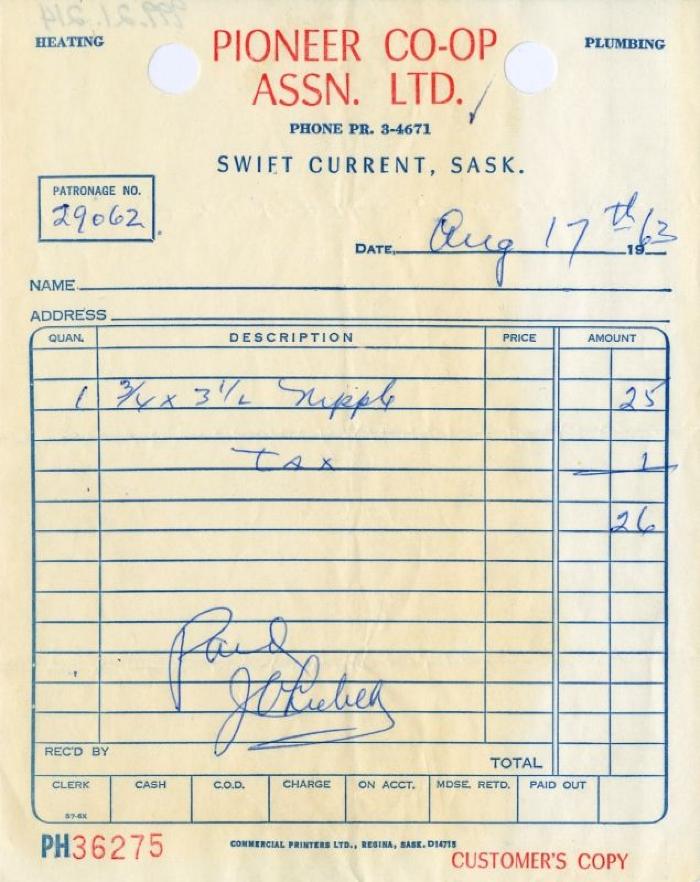 999.21.214
HEATING PIONEER CO-OP PLUMBING
ASSN. LTD.
PHONE PR. 3-4671
SWIFT CURRENT, SASK.
PATRONAGE NO.
29062
DATE Aug 17th 1963
NAME
ADDRESS
QUAN. DESCRIPTION PRICE AMOUNT
1 3/4 x 3 1/2 Nipple 25
TAX 1
26
Paid
REC'D BY TOTAL
CLERK CASH C.O.D. CHARGE ON ACCT. MDSE. RETD. PAID OUT
57-6X
PH36275 COMMERCIAL PRINTERS LTD., REGINA, SASK. D14715
CUSTOMER'S COPY